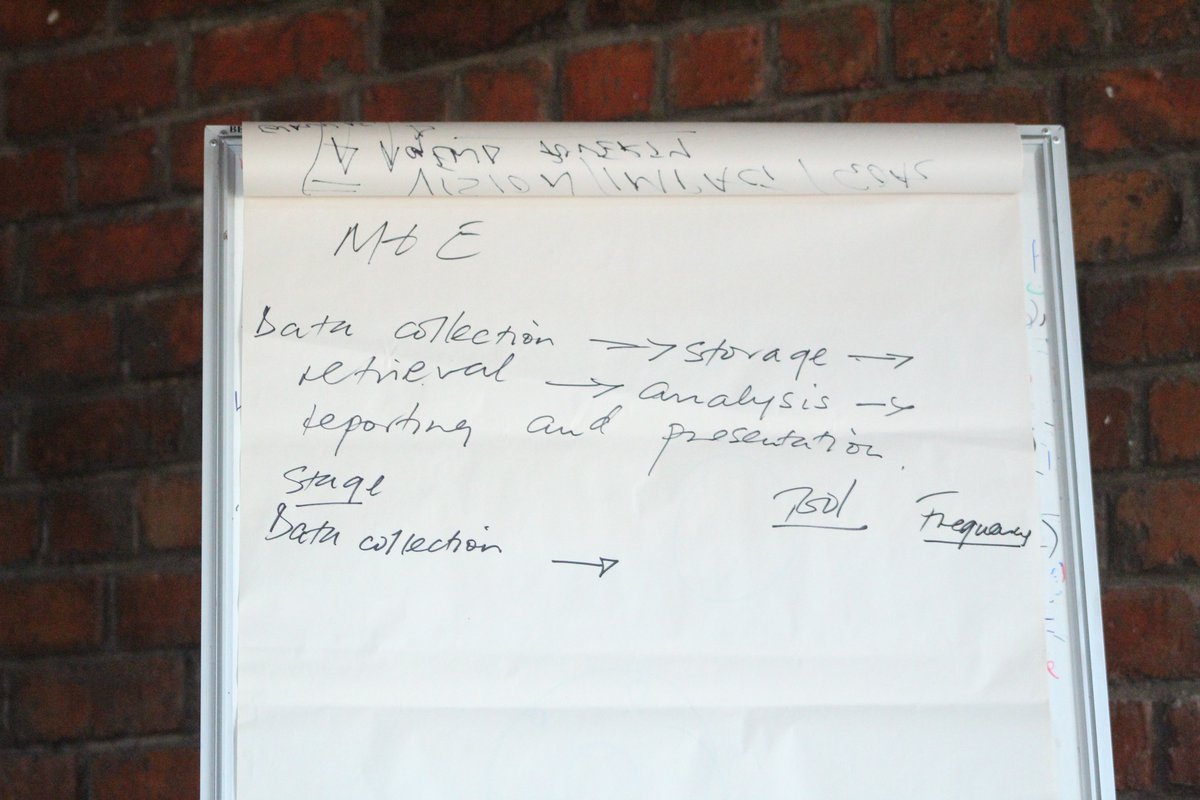 VISION / IMPACT / GOAL
M+E
Data collection →→ storage →
retrieval → analysis →
reporting and presentation.
Stage Tool Frequency
Data collection →